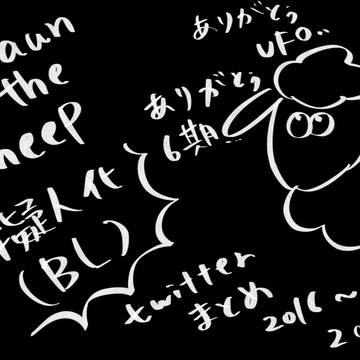 aun
the
heep
擬人化
(BL)
ありがとう
UFO..
ありがとう
6期...
twitter
まとめ
2016~
20